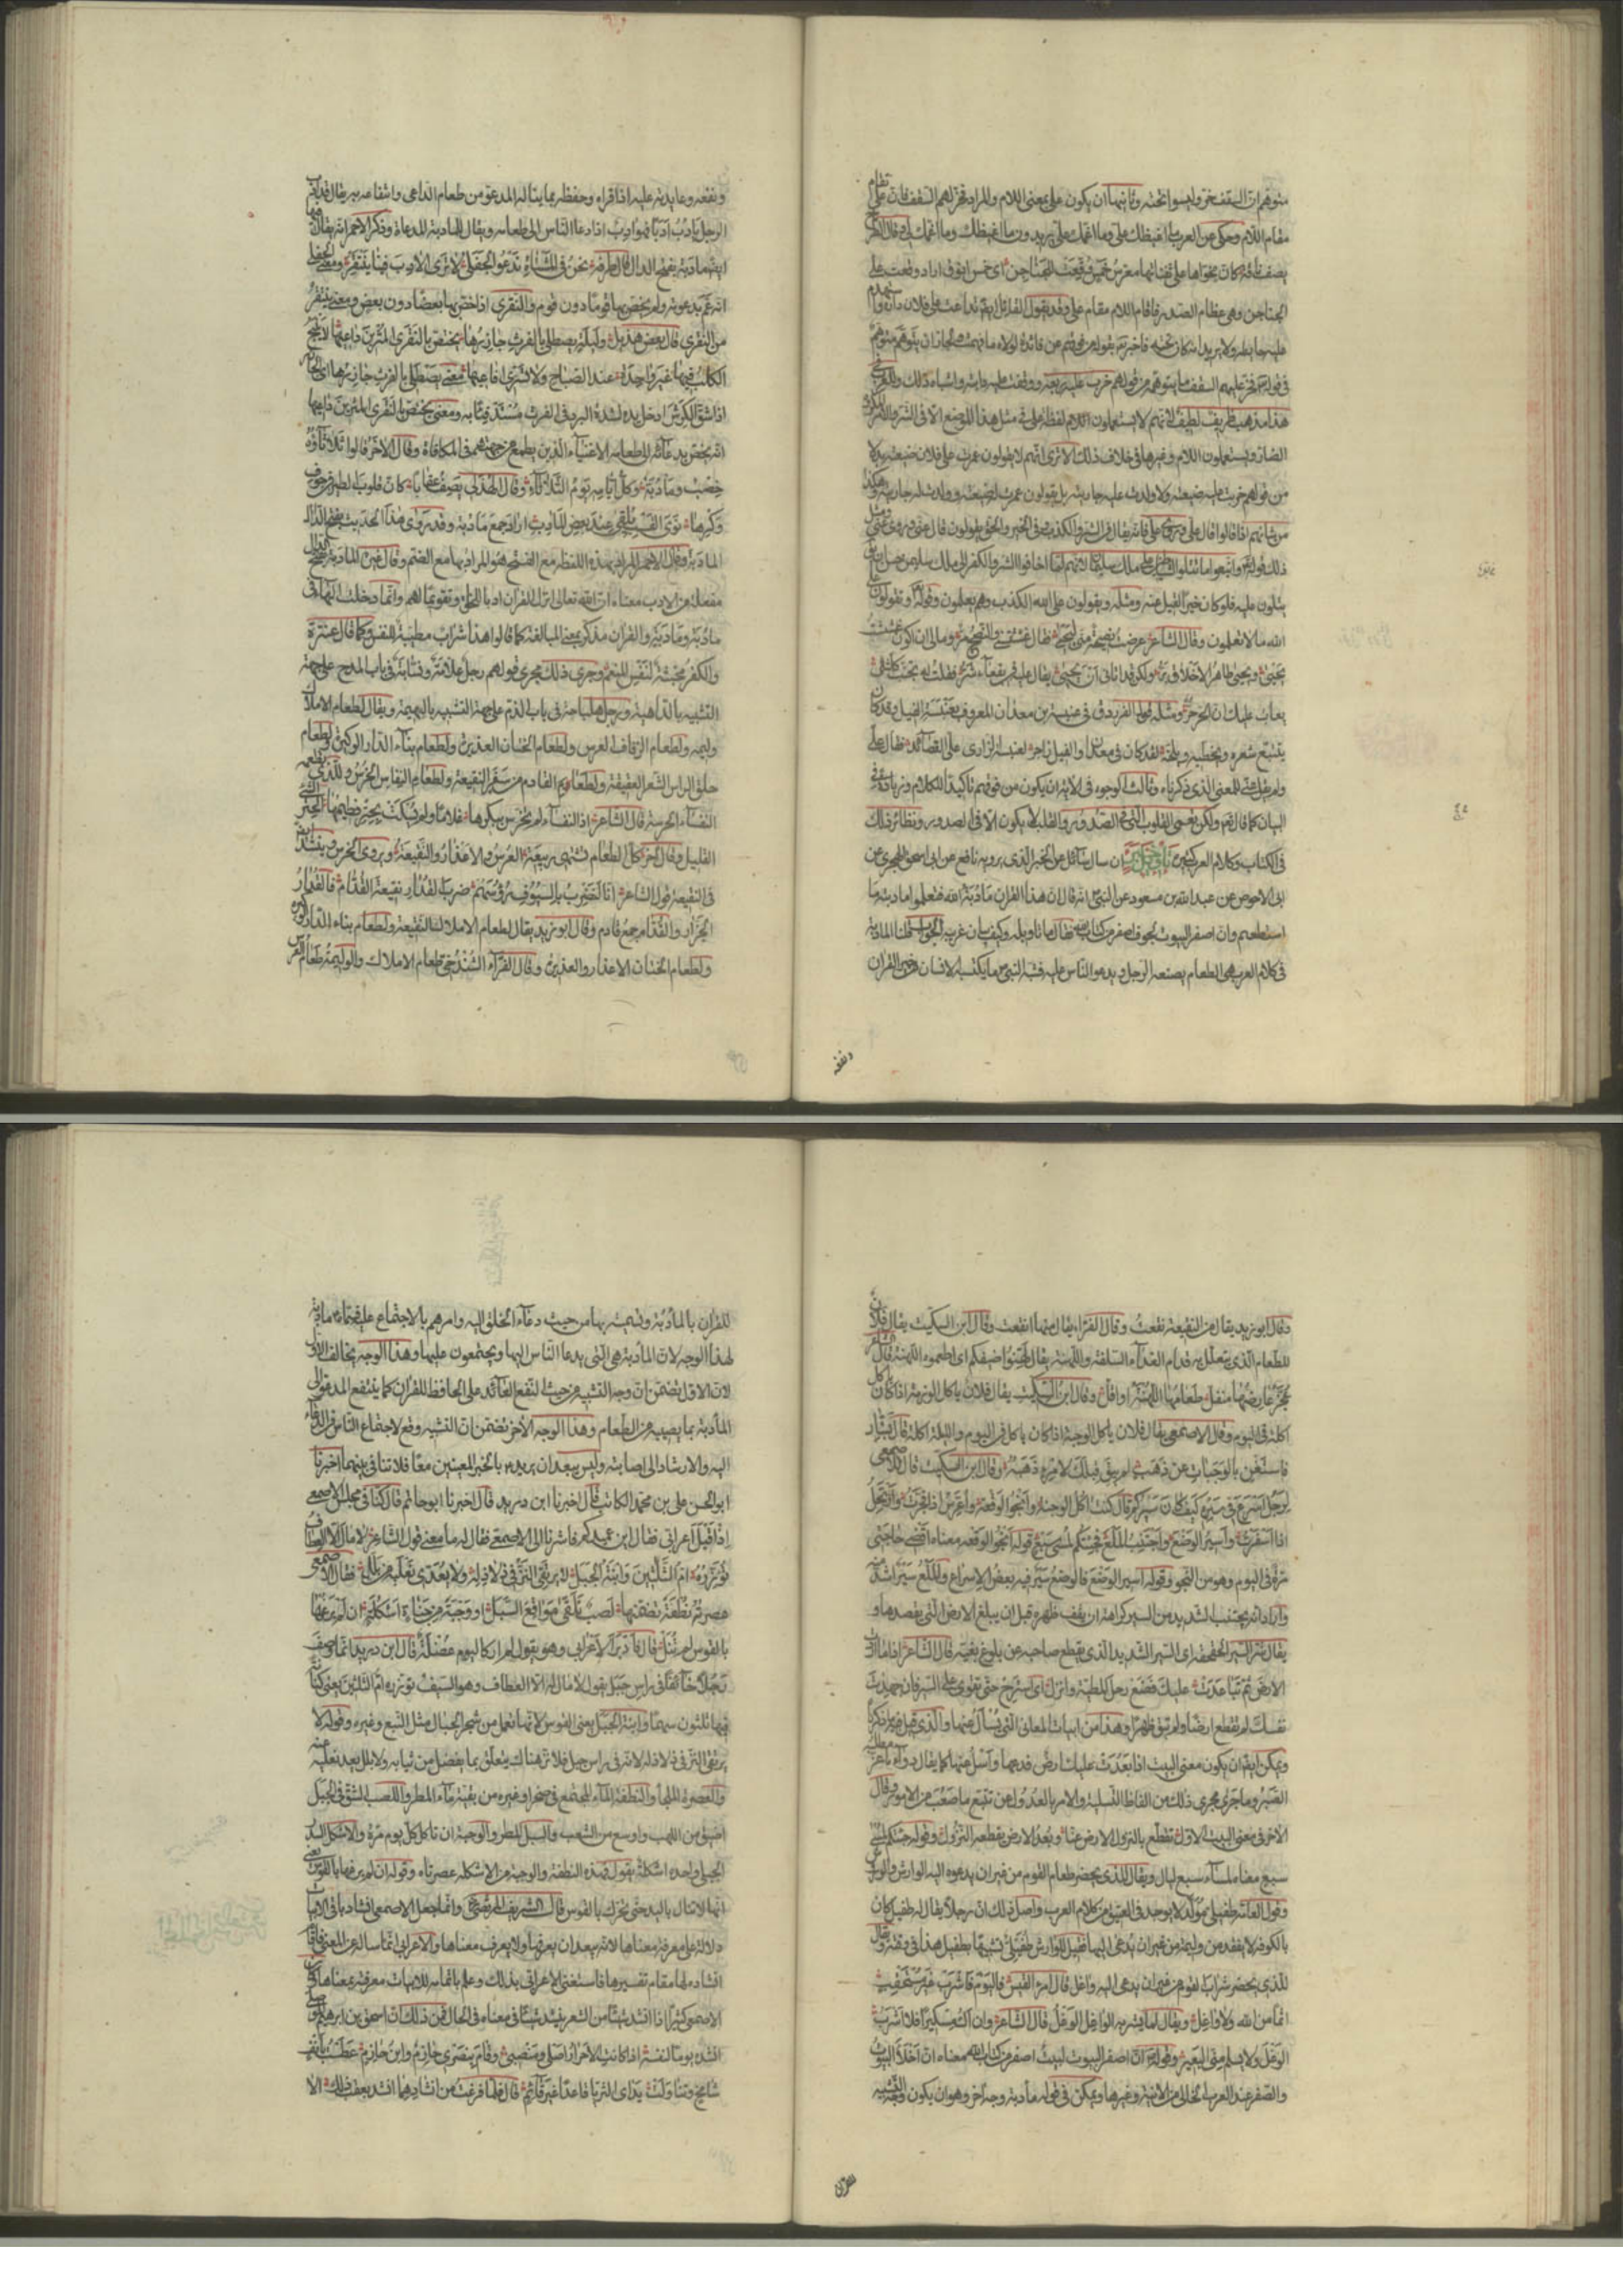 متوهم ان السقف خر وليسوا تحته وثانيها ان يكون على بمعنى اللام والمراد فخر لهم السقف فان على تقام
مقام اللام وحكى عن العرب ما اغيظك على وما اغمك على يريدون ما اغيظك لى وما اغمك لى وقال الطرماح
يصف ناقة كان مخواها على ثفناتها معرس خمس وقعت للجناجن اى خمس اينق اراد وقعت على
الجناجن وهى عظام الصدر فاقام اللام مقام على وقد يقول القائل ايضا تداعت على فلان داره واستهدم
عليه حايطه ولا يريد انه كان تحته فاخبر تعالى بقوله من فوقهم عن فائدة لولاه ما فهمت ولجاز ان يتوهم متوهم
فى قوله تعالى فخر عليهم السقف ما يتوهم من قولهم خرب عليه ربعه ووقفت عليه دابته واشباه ذلك وللعرب فى
هذا مذهب طريف لطيف لانهم لا يستعملون اللام لفظة على فى مثل هذا الموضع الا فى الشر والامر المكروه
الضار ويستعملون اللام وغيرها فى خلاف ذلك الا ترى انهم لا يقولون عمرت على فلان ضيعته بدلا
من قولهم خربت عليه ضيعته ولا ولدت عليه جاريته بل يقولون عمرت له ضيعته وولدت له جاريته وهكذا
من شانهم اذا قالوا قال على وروى على فانه يقال فى الشر والكذب وفى الخير والحق يقولون قال عنى وروى عنى ومثل
ذلك قوله تعالى واتبعوا ما تتلوا الشياطين على ملك سليمان لانهم لما اضافوا الشر والكفر الى ملك سليمن حسن ان يق
يتلون عليه فلو كان خيرا لقيل عنه ومثله ويقولون على الله الكذب وهم يعلمون وقوله تعالى وتقولون على
الله ما لا تعلمون وقال الشاعر عرضت نصيحة منى ليحيى فقال غششتنى والنصح مر ومالى ان اكون غششت
يحيى ويحيى طاهر الاخلاق بر ولكن قد اتانى ان يحيى يقال عليه فى بقعاء شر فقلت له تجنب كل شئ
يعاب عليك ان الحر حر ومثله قول الفرزدق فى عنبسة بن معدان المعروف بعنبسة الفيل وقد كان
يتتبع شعره ويخطئه ويلحنه لقد كان فى معدان والفيل زاجر لعنبسة الراوى على القصائدا فقال على
ولم يقل عنى للمعنى الذى ذكرناه وثالث الوجوه فى الاية ان يكون من فوقهم تاكيدا للكلام وزيادة فى
البيان كما قال تعالى ولكن تعمى القلوب التى فى الصدور والقلب لا يكون الا فى الصدور ونظائر ذلك
فى الكتاب وكلام العرب كثير تاويل خبر ان سال سائل عن الخبر الذى يرويه نافع عن ابى اسحق الهجرى عن
ابى الاحوص عن عبد الله بن مسعود عن النبى انه قال ان هذا القران مادبة الله فتعلموا مادبته ما
استطعتم وان اصفر البيوت لجوف اصفر من كتاب الله فقال ما تاويله وكيف بيان غريبه الجواب قلنا المادبة
فى كلام العرب هى الطعام يصنعه الرجل ويدعو الناس عليه فشبه النبى ما يكتسبه الانسان من خير القران
ونفعه
ونفعه وعايدته عليه اذا قراه وحفظه بما يناله المدعو من طعام الداعى وانتفاعه به يقال قد ادب
الرجل يادب ادبا فهو ادب اذا دعا الناس الى طعامه ويقال للمادبة المدعاة وذكر الاحمر انه يقال فيها
ايضا مادبة بفتح الدال قال طرفة نحن فى المشتاة ندعو الجفلى لا ترى الادب فينا ينتقر ومعنى الجفلى
انه عم بدعوته ولم يخص بها قوما دون قوم والنقرى اذا خص بها بعضا دون بعض ومعنى ينتقر
من النقرى قال بعض هذيل وليلة يصطلى بالفرث جازرها يختص بالنقرى المثرين داعيها لا ينبح
الكلب فيها غير واحدة عند الصباح ولا تسرى افاعيها معنى يصطلى بالفرث جازرها اى الجازر
اذا شق الكرش ادخل يده لشدة البرد فى الفرث مستدفئا به ومعنى يختص بالنقرى المثرين داعيها
انه يخص بدعائه الى طعامه الاغنياء الذين يطمع من جهتهم فى المكافاة وقال الاخر قالوا ثلاثاؤه
خصب ومادبة وكل ايامه يوم الثلاثاء وقال الهذلى يصف عقابا كان قلوب الطير فى جوف
وكرها نوى القسب يلقى عند بعض المادب اراد جمع مادبة وقد روى هذا الحديث بفتح الدال
المادبة وقال الاحمر المراد بهذه اللفظة مع الفتح هو المراد بها مع الضم وقال غيره المادبة بفتح الدال
مفعلة من الادب معناه ان الله تعالى انزل القران ادبا للخلق وتقويما لهم وانما دخلت الهاء فى
مادبة ومادبة والقران مذكر لمعنى المبالغة كما قالوا هذا شراب مطيبة للنفس وكما قال عنترة
والكفر مخبثة لنفس المنعم وجرى ذلك مجرى قولهم رجل علامة ونسابة فى باب المدح على جهة
التشبيه بالداهية ورجل هلباجة فى باب الذم على جهة التشبيه بالبهيمة ويقال لطعام الاملاك
وليمة ولطعام الزفاف العرس ولطعام الختان العذيرة ولطعام بناء الدار الوكيرة ولطعام
حلق الراس الشعر العقيقة ولطعام يوم القادم من سفر النقيعة ولطعام النفاس الخرس والذى تطعمه
النفساء الخرسة قال الشاعر اذا النفساء لم تخرس ببكرها غلاما ولم يسكت بحتر فطيمها الحتر الشئ
القليل وقال اخر كل الطعام تشتهى ربيعة الخرس والاعذار والنقيعة ويروى الخرس وينشد
فى النقيعة قول الشاعر انا لنضرب بالسيوف رؤسهم ضرب القدار نقيعة القدام فالقدار
الجزار والقدام جمع قادم وقال ابو زيد يقال لطعام الاملاك النقيعة ولطعام بناء الدار الوكيرة
ولطعام الختان الاعذار والعذيرة وقال الفراء الشندخى طعام الاملاك والوليمة طعام العرس
وقال ابو زيد يقال من النقيعة نقعت وقال الفراء يقال منها انقعت وقال ابن السكيت يقال فلان
للطعام الذى يتعلل به قدام الغداء السلفة واللهنة يقال لهنوا ضيفكم اى اطعموه اللهنة قال الشاعر
طعامها اللهنة او اقل وقال ابن السكيت يقال فلان ياكل الوزمة اذا كان ياكل
اكلة فى اليوم وقال الاصمعى يقال فلان ياكل الوجبة اذا كان ياكل فى اليوم والليلة اكلة قال بشار
فاستغن بالوجبات عن ذهب لم يبق قبلك لامرئ ذهبه وقال ابن السكيت قال الاصمعى
لرجل اسرع فى سيره كيف كان سيرك قال كنت اكل الوجبة وانجو الوقعة واعرس اذا فجرت وارتحل
اذا اسفرت واسير الوضع واجتنب الملع فجئتكم لمسى سبع قوله انجو الوقعة معناه اقضى حاجتى
مرة فى اليوم وهو من النجو وقوله اسير الوضع فالوضع سير فيه بعض الاسراع والملع سير اشد منه
واراد انه يجتنب الشديد من السير كراهة ان يقف ظهره قبل ان يبلغ الارض التى يقصدها و
يقال شر السير الحقحقة اى السير الشديد الذى يقطع صاحبه عن بلوغ بغيته قال الشاعر اذا ما اردت
الارض ثم تباعدت عليك فضع رحل المطية وانزل اى استرح حتى تقوى على السير فان جهدت
نفسك لم تقطع ارضا ولم تبق ظهرا وهذا من ابيات المعانى التى يسال عنها والذى قيل فيه ما ذكرناه
ويمكن ايضا ان يكون معنى البيت اذا بعدت عليك ارض فدعها واسل عنها كما يقال دواء ما عز مطلبه
الصبر وما جرى مجرى ذلك من الفاظ التسلية والامر بالعدول عن تتبع ما صعب من الامور وقال
الاخر فى معنى البيت الاول تقطع بالنزول الارض عنا وبعد الارض يقطعه النزول وقوله جئتكم لمسى
سبع معناه لمساء سبع ليال ويقال للذى يحضر طعام القوم من غير ان يدعوه اليه الوارش والورش
وقول العامة طفيلى مولد لا يوجد فى العتيق من كلام العرب واصل ذلك ان رجلا يقال له طفيل كان
بالكوفة لا يفقد من وليمة من غير ان يدعى اليها فقيل للوارش طفيلى تشبيها بطفيل هذا فى وقته ويقال
للذى يحضر شراب القوم من غير ان يدعى اليه واغل قال امرؤ القيس فاليوم فاشرب غير مستحقب
اثما من الله ولا واغل ويقال لما يشربه الواغل الوغل قال الشاعر وان اك مسكيرا فلا اشرب
الوغل ولا يسلم منى البعير وقوله ان اصفر البيوت لبيت اصفر من كتاب الله معناه ان اخلا البيوت
والصفر عند العرب الخالى من الانية وغيرها ويمكن فى قوله مادبة وجه اخر وهو ان يكون وجه التشبيه
للقران
للقران بالمادبة وتسميته بها من حيث دعاء الخلق اليه وامرهم بالاجتماع عليه فسماه مادبة
لهذا الوجه لان المادبة هى التى يدعا الناس اليها ويجتمعون عليها وهذا الوجه يخالف الاول
لان الاول يضمن ان وجه التشبيه من حيث النفع العائد على الحافظ للقران كما ينتفع المدعو الى
المادبة بما يصيبه من الطعام وهذا الوجه الاخر تضمن ان التشبيه وقع لاجتماع الناس فى الدعاء
اليه والارشاد الى اصابته وليس ببعيد ان يريد بالخبر المعنيين معا فلا تنافى بينهما اخبرنا
ابو الحسن على بن محمد الكاتب قال اخبرنا ابن دريد قال اخبرنا ابو حاتم قال كنا فى مجلس الاصمعى
اذ اقبل اعرابى فقال اين عميدكم فاشرنا الى الاصمعى فقال له ما معنى قول الشاعر لا مال الا العطاف
تؤزره ام الثلثين وابنة الجبل لا يرتقى النز فى ذلاذله ولا يعدى نعليه من بلل فقال الاصمعى
عصرته نطفة تضمنها لصب تلقى مواقع السبل او وجبة من جناة اشكلة ان لم يرغها
بالقوس لم تنل قال فادبر الاعرابى وهو يقول لم ار كاليوم عضلة قال ابن دريد انما وصف
رجلا خائفا فى راس جبل يقول لا مال له الا العطاف وهو السيف تؤزره ام الثلثين يعنى كنانة
فيها ثلثون سهما وابنة الجبل يعنى القوس لانها تعمل من شجر الجبال مثل النبع وغيره وقوله لا
يرتقى النز فى ذلاذله لانه فى راس جبل فلا نز هناك يتعلق بما يفضل من ثيابه ولا بلل يعد نعليه عنه
والعصرة الملجأ والنطفة الماء المجتمع فى صخر او غيره من بقية ماء المطر واللصب الشق فى الجبل
اضيق من اللهب واوسع من الشعب والسبل المطر والوجبة ان تاكل كل يوم مرة والاشكل السدر
الجبلى واحده اشكلة يقول فهذه النطفة والوجبة من الاشكلة عصرتاه وقوله ان لم يرغها بالقوس يعنى
انها لا تنال باليد حتى تحرك بالقوس قال الشريف المرتضى وانما جعل الاصمعى انشاد باقى الابيات
دلالة على معرفة معناها لانه يبعد ان يعرفها ولا يعرف معناها والاعرابى انما ساله عن المعنى فاقام
انشاده لها مقام تفسيرها فاستغنى الاعرابى بذلك وعلم باتمامه للابيات معرفته بمعناها وكان
الاصمعى كثيرا اذا انشد شيئا من الشعر ينشد شيئا فى معناه فى الحال فمن ذلك ان اسحق بن ابرهيم الموصلى
انشده يوما لنفسه اذا كانت الاحرار اصلى ومنصبى وقام بنصرى خازم وابن خازم عطست بانف
شامخ وتناولت يداى الثريا قاعدا غير قائم قال فلما فرغت من انشادهما انشد بعقب ذلك الا